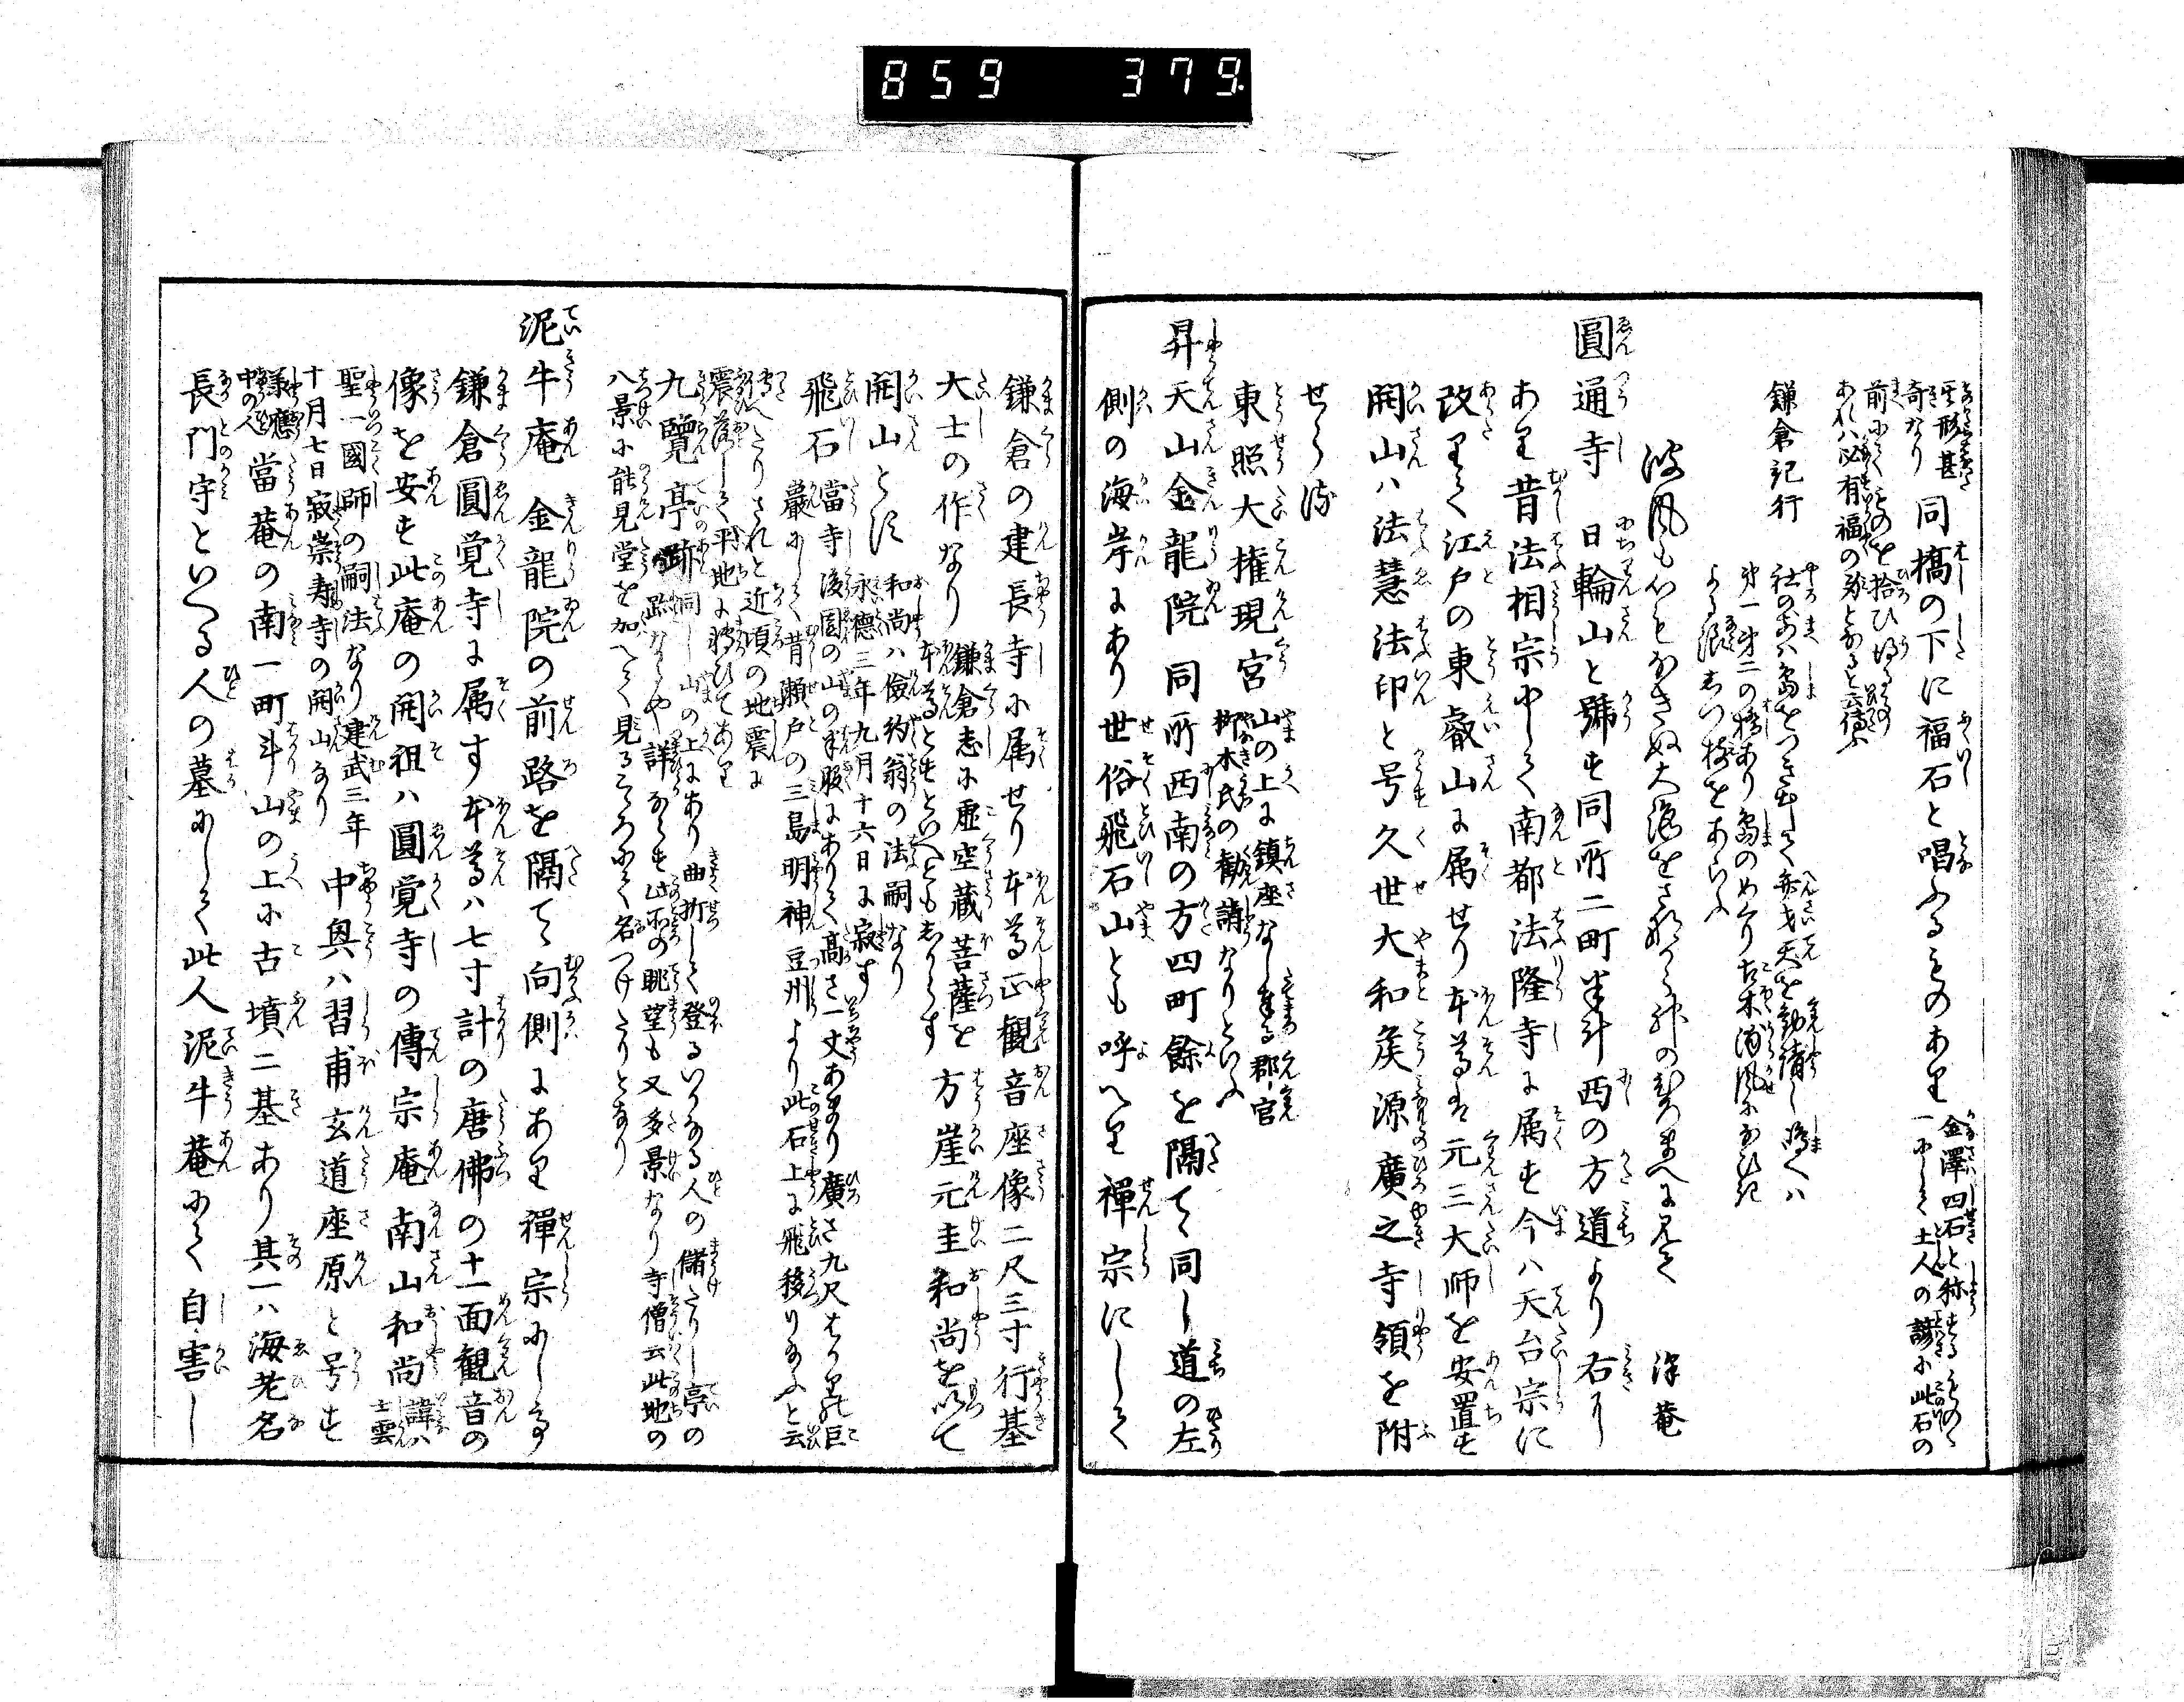 859 379.
其形甚
奇なり 同橋の下に福石と唱ふるものあり 金澤四石と称するものゝ
一にして土人の諺に此石の
前にてものを拾ひ得るもの
あれハ必有福の身となると云傳ふ
鎌倉記行 社のまへハ島をつき出して弁才天を勧請し島へハ
第一第二の橋あり島のめくり古木浦風におひ
よる浪しつ枝をあらふ
波風も
圓通寺 日輪山と號す同所二町半斗西の方道より右に
あり昔法相宗にして南都法隆寺に属す今ハ天台宗に
改りて江戸の東叡山に属せり本尊は元三大師を安置す
開山ハ法慧法印と号久世大和矦源廣之寺領を附
せらる
東照大権現宮 山の上に鎮座なし奉る郡官
柳木氏の勧請なりといふ
昇天山金龍院 同所西南の方四町餘を隔てゝ同し道の左
側の海岸にあり世俗飛石山とも呼へり禅宗にして
鎌倉の建長寺に属せり本尊正観音座像二尺三寸行基
大士の作なり 鎌倉志に虚空蔵菩薩を
本尊とすといへとも しからす 方崖元圭和尚を以て
開山とす 和尚ハ儉約翁の法嗣なり
永德三年九月十六日に寂す
飛石 當寺後園の山の半腹にありて高さ一丈あまり廣さ九尺はかり巨
巖にして昔瀬戸の三島明神豆州より此石上に飛移りたまふと云
傳へたりされと近頃の地震に
震落して平地に轉ひてあり
九覽亭跡 同し山の上にあり曲折して登るいかなる人の儲たりし亭の
跡ならや詳ならす此所の眺望も又多景なり寺僧云此地の
八景に能見堂を加へて見るところにて名つけたりとなり
泥牛庵 金龍院の前路を隔て向側にあり禅宗にして
鎌倉圓覚寺に属す本尊ハ七寸計の唐佛の十一面観音の
像を安す此庵の開祖ハ圓覚寺の傳宗庵南山和尚 諱ハ
士雲
聖一國師の嗣法なり建武三年
十月七日寂崇寿寺の開山なり 中興ハ習甫玄道座原と号す
様應
中の人 當菴の南一町斗山の上に古墳二基あり其一ハ海老名
長門守といへる人の墓にして此人泥牛菴にて自害し